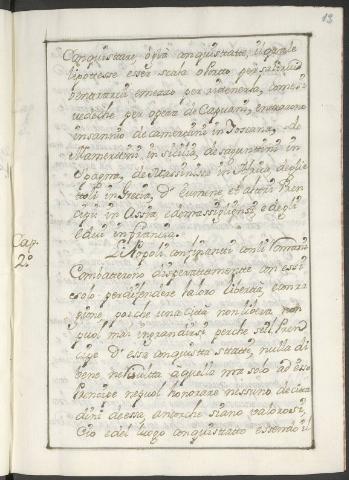 13
Conquistare, ò già conquistate, il quale
li potesse esser scala ò Porto per salirui ò
p entraruia e mezzo per ritenersia, come si
uede che per opera de Capuani, entrorono
in sannio de camertini in Toscana, de
Mamertini in Sicilia, de saguntini in
Spagna, de Massinissa in Africa degl'e
toli in Grecia, d' Eumene et altri Pren
cipi in Assia, e de massigliensi, e degli
edui in francia.
Cap. 2.º
Li Popoli confinanti con li Romani
Combatterono disperatamente con essi
solo per difendere la loro libertà, e con ra
gione, poi che una Città non libera non
puol mai ingrandirsi perche se il Pren
cipe d' essa conquista stati, nulla di
bene ne risulta à quella ma solo ad esso
Prencipe ne puol honorare nessuno de Citta
dini de essa, ancorche siano valorosi,
Ciò e del luogo conquistato essendo il